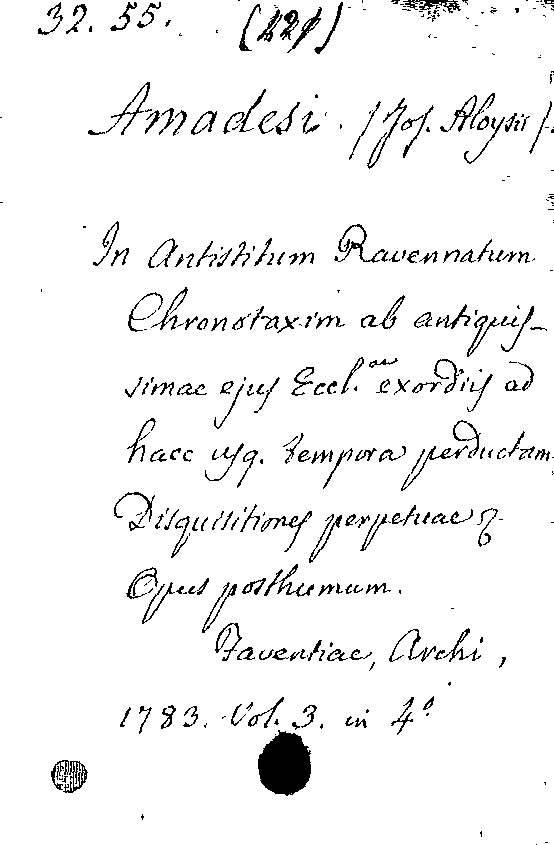 32. 55. (421)
Amadesi. /Jos. Aloysii/.
In Antistitum Ravennatum
Chronotaxim ab antiquis-
simae ejus Eccl.ae exordiis ad
haec usq. tempora perductam
Disquisitiones perpetuae
Opus posthumum.
Faventiae, Archi,
1783. Vol. 3. in 4º